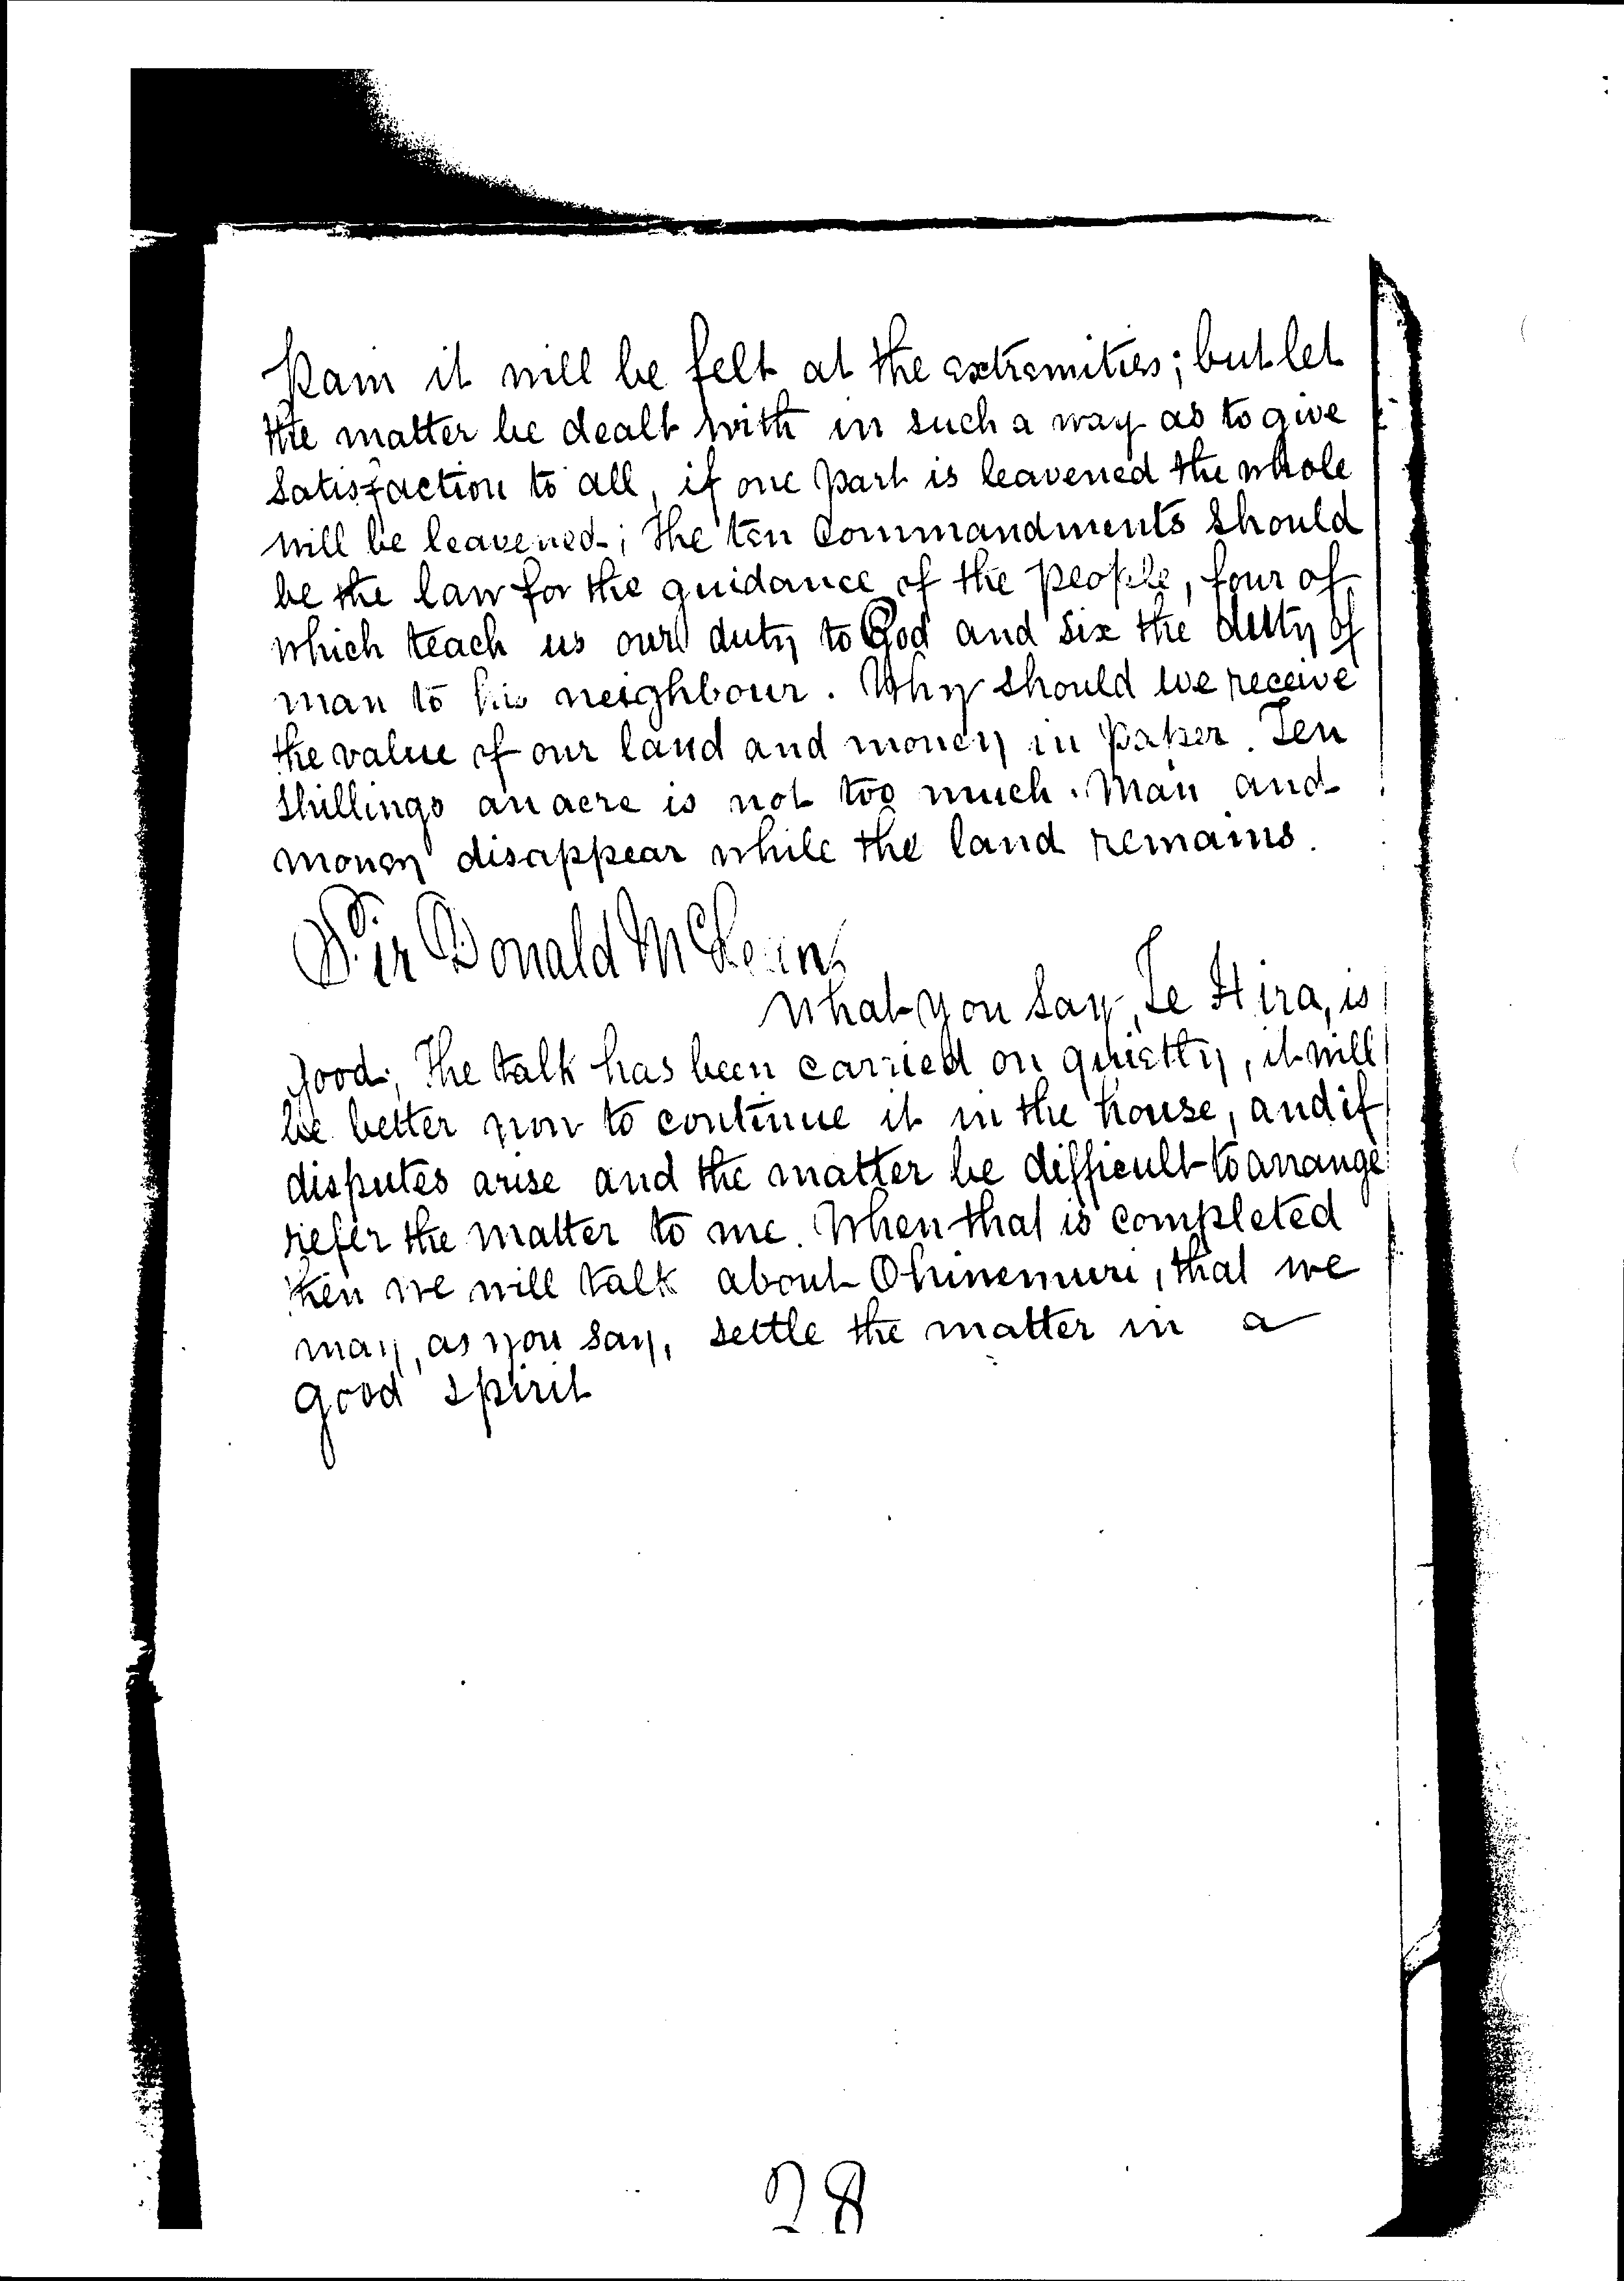 pain it will be felt at the extremities; but let
the matter be dealt with in such a way as to give
satisfaction to all, if one part is leavened the whole
will be leavened; the ten Commandments should
be the law for the guidance of the people, four of
which teach us our duty to God and six the duty of
man to his neighbour. Why should we receive
the value of our land and money in paper. Ten
shillings an acre is not too much. Man and
money disappear while the land remains.
Sir Donald McLean,
What you say, Te Hira, is
good; The talk has been carried on quietly, it will
be better now to continue it in the house, and if
disputes arise and the matter be difficult to arrange
refer the matter to me. When that is completed
then we will talk about Ohinemuri, that we
may, as you say, settle the matter in a
good spirit
28